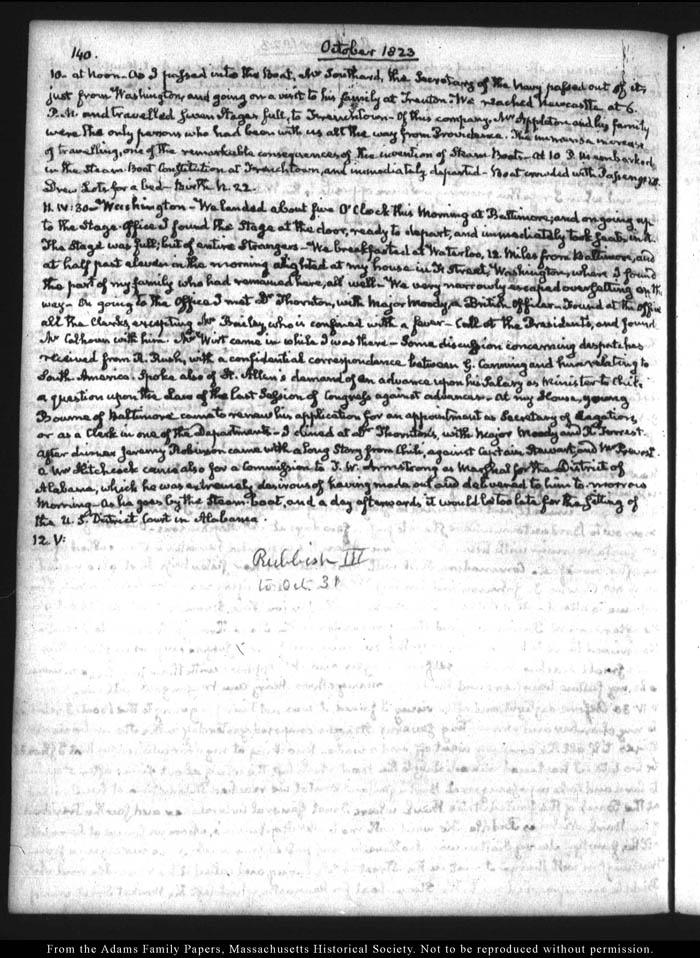 140.
October 1823
10. at Noon. As I passed into the Boat, Mr Southard, the Secretary of the Navy passed out of it,
just from Washington, and going on a visit to his family at Trenton. We reached Newcastle at 6.
P.M. and travelled seven Stages full, to Frenchtown. Of this company, Mr Appleton and his family
were the only persons who had been with us all the way from Providence. The immense increase
of travelling, one of the remarkable consequences of the invention of Steam Boats. At 10 P.M. we embarked
in the Steam-Boat Constitution at Frenchtown, and immediately departed. Boat crowded with Passengers.
Drew Lots for a bed. Birth N. 22.
11. IV:30. Washington. We landed about five O'Clock this Morning at Baltimore, and on going up
to the Stage-Office I found the Stage at the door, ready to depart, and immediately took seats in it.
The Stage was full; but of entire Strangers. We breakfasted at Waterloo, 12 Miles from Baltimore, and
at half past eleven in the morning alighted at my house in F. Street, Washington, where I found
the part of my family who had remained here, all well. We very narrowly escaped oversetting on the
way. On going to the Office I met Dr Thornton, with Major Moody, a British Officer. Found at the Office
all the Clerks, excepting Mr Bailey, who is confined with a fever. Call at the Presidents, and found
Mr Calhoun with him. Mr Wirt came in while I was there. Some discussion concerning despatches
received from R. Rush, with a confidential correspondence between G. Canning and him relating to
South-America. Spoke also of H. Allen's demand of an advance upon his Salary as Minister to Chili.
a question upon the Law of the last Session of Congress against advances. At my House, young
Bourne of Baltimore came to renew his application for an appointment as Secretary of Legation,
or as a Clerk in one of the Departments. I dined at Dr Thornton's, with Major Moody and R. Forrest.
After dinner Jeremy Robinson came with a long Story from Chili, against Captain Stewart, and Mr Prevost.
a Mr Hitchcock came also for a Commission to F. W. Armstrong as Marshal for the District of
Alabama, which he was extremely desirous of having made out and delivered to him to-morrow
Morning. As he goes by the Steam-boat, and a day afterwards it would be too late for the sitting of
the U.S. District Court in Alabama.
12. V:
Rubbish III
to Oct. 31
From the Adams Family Papers, Massachusetts Historical Society. Not to be reproduced without permission.